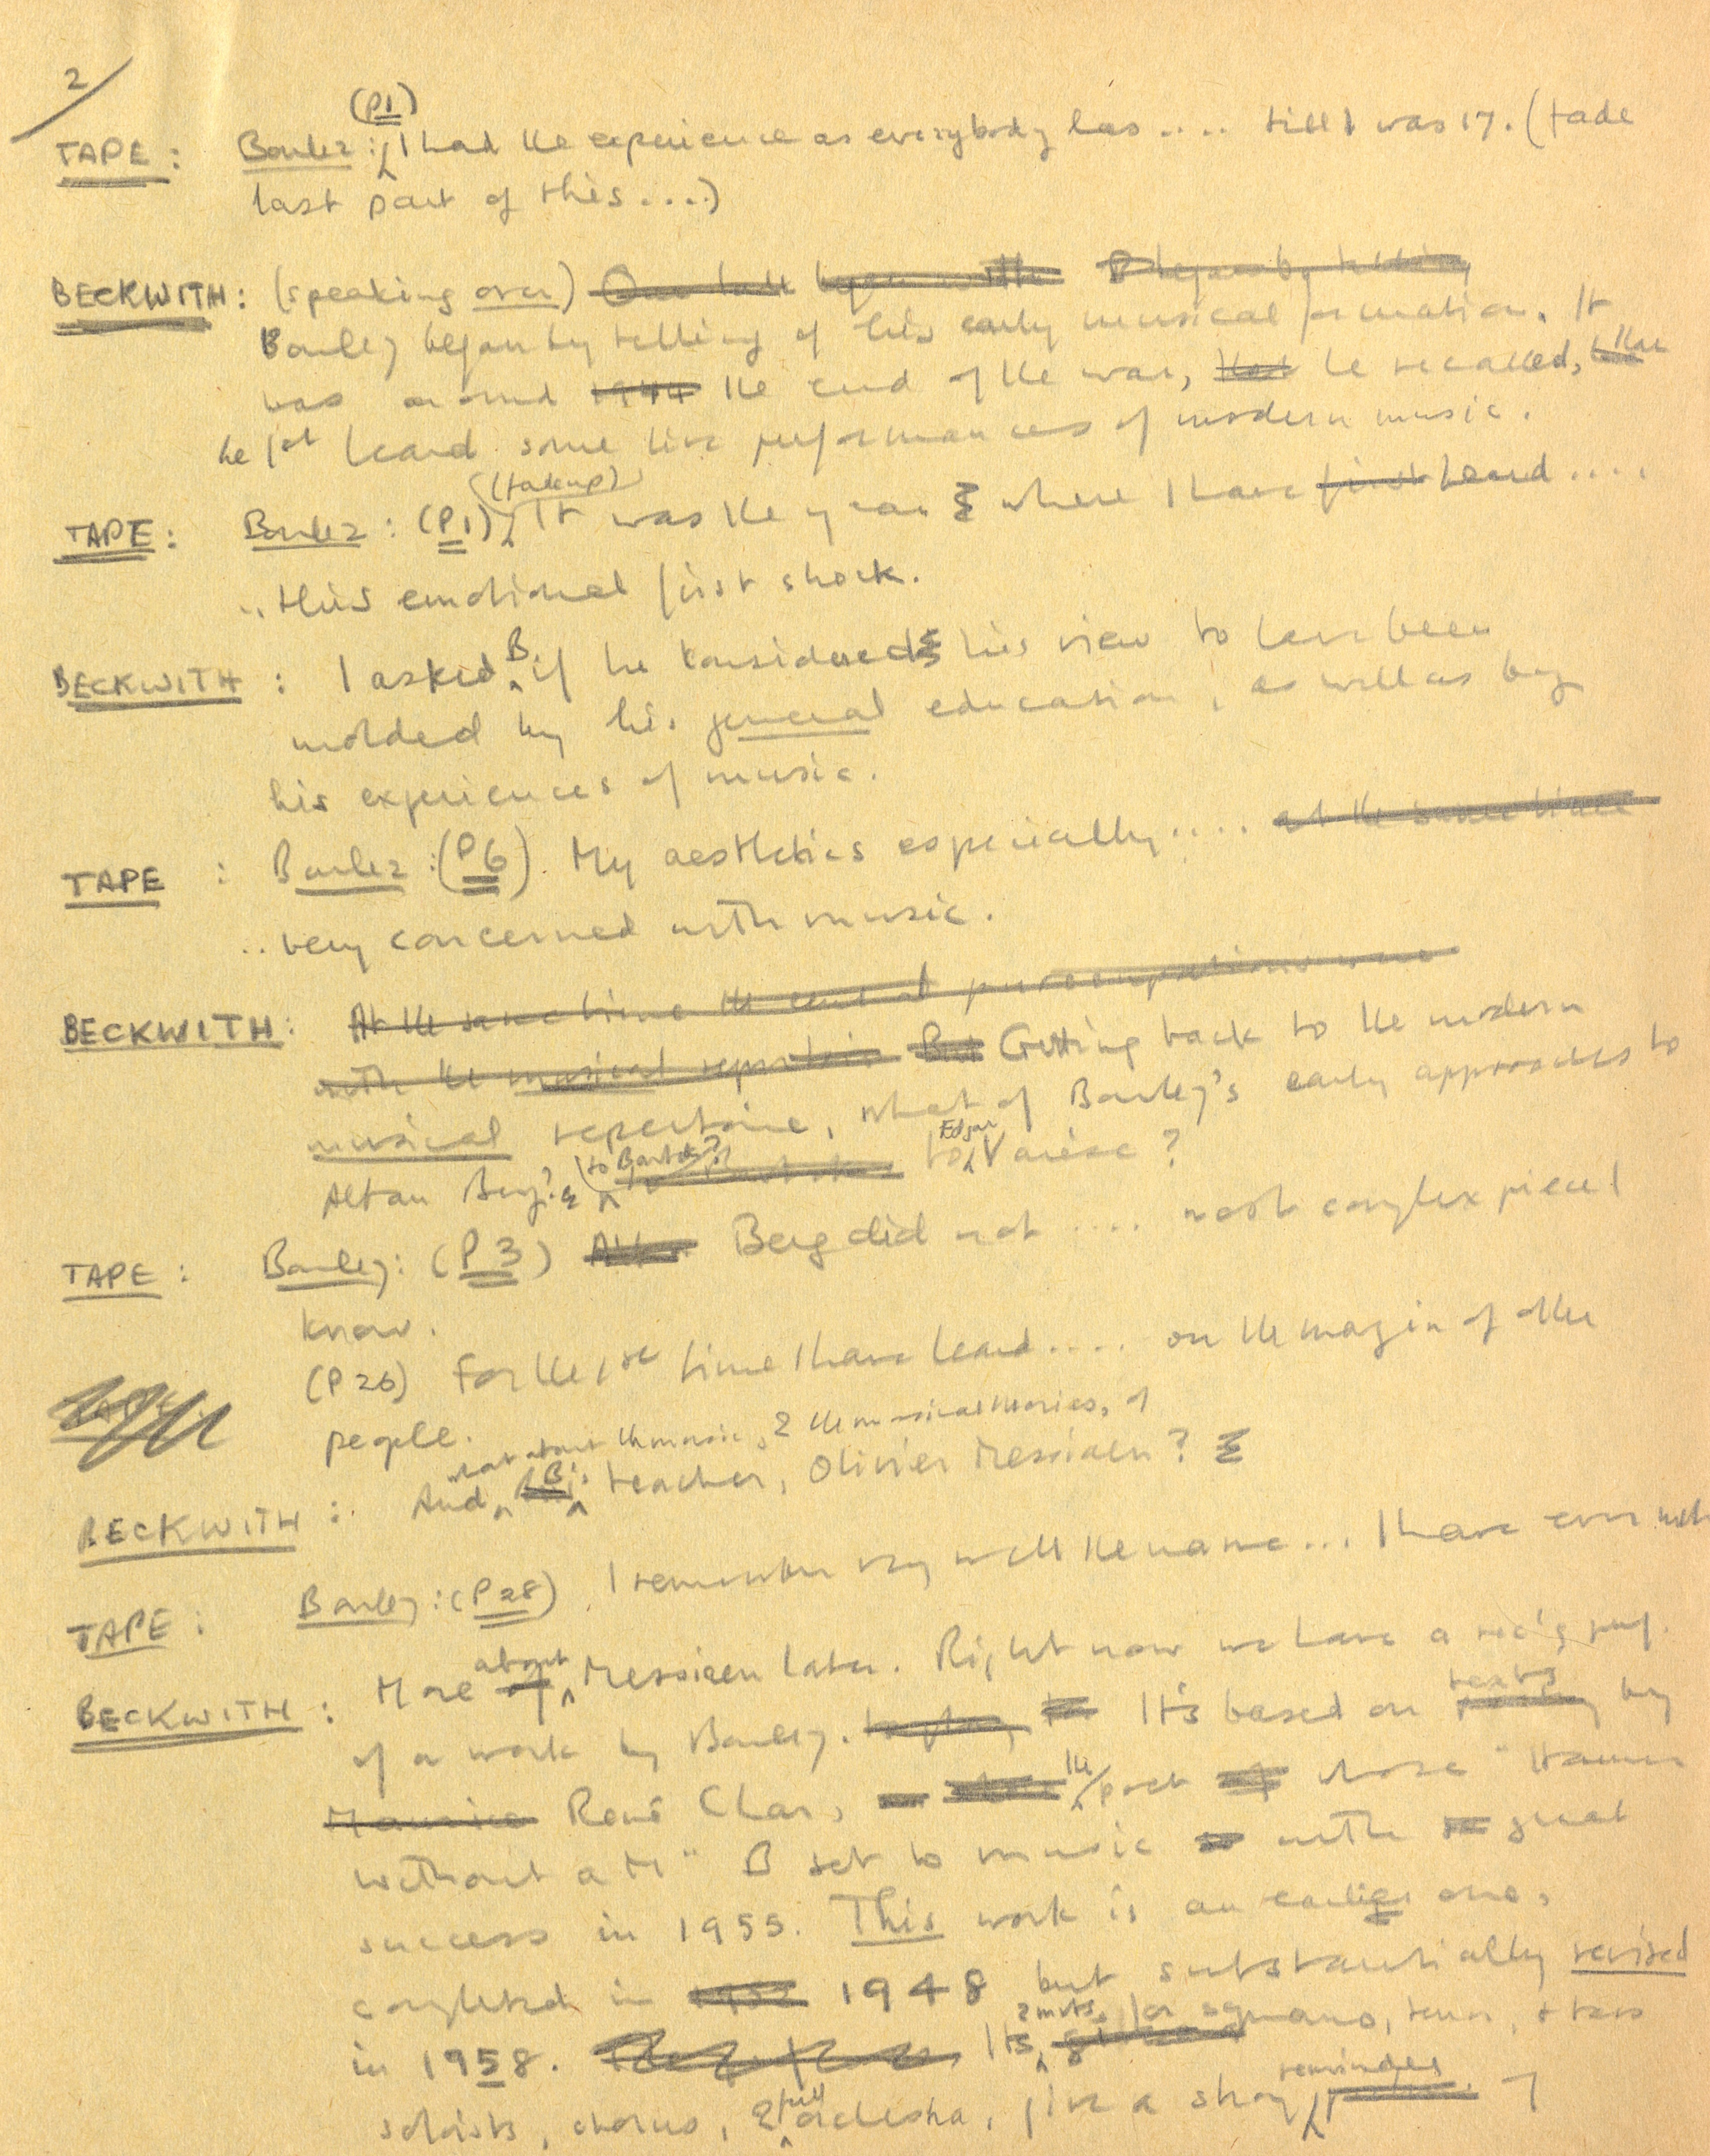 2/
(P1)
TAPE: Boulez: I had the experience as everybody has .... till I was 17. (fade
last part of this ....)
BECKWITH: (speaking over) Our talk began with B began by telling
Boulez began by telling of his early musical formation. It
was around 1944 the end of the war, that he recalled, that
he 1st heard some live performances of modern music.
(fade up)
TAPE: Boulez: (P1) It was the year where I have first heard ....
.. this emotional first shock.
BECKWITH: I asked B. if he considered his view to have been
molded by his general education, as well as by
his experiences of music.
TAPE: Boulez: (P6). My aesthetics especially .... at the same time
.. very concerned with music.
BECKWITH: At the same time the central preoccupations were
with the musical repertoire But Getting back to the modern
musical repertoire, what of Boulez's early approaches to
Alban Berg? (to Bartok?) to Edgar Varèse?
TAPE: Boulez: (P3) Berg did not .... most complex piece I
know.
(P26) For the 1st time I have heard .... on the margin of other
people.
what about the music, & the musical theories, of
BECKWITH: And B's teacher, Olivier Messiaen?
TAPE: Boulez: (P28). I remember very well the name ... I have ever met
BECKWITH: More of about Messiaen later. Right now we have a rec'g
of a work by Boulez. It's based on texts by
Maurice René Char, the poet whose "Hammer
without a M" B set to music with great
success in 1955. This work is an earlier one,
completed in 1948 but substantially revised
in 1958. Its 2 mvts. for soprano, tenor, & bass
soloists, chorus, & full orchestra, give a strong reminder of